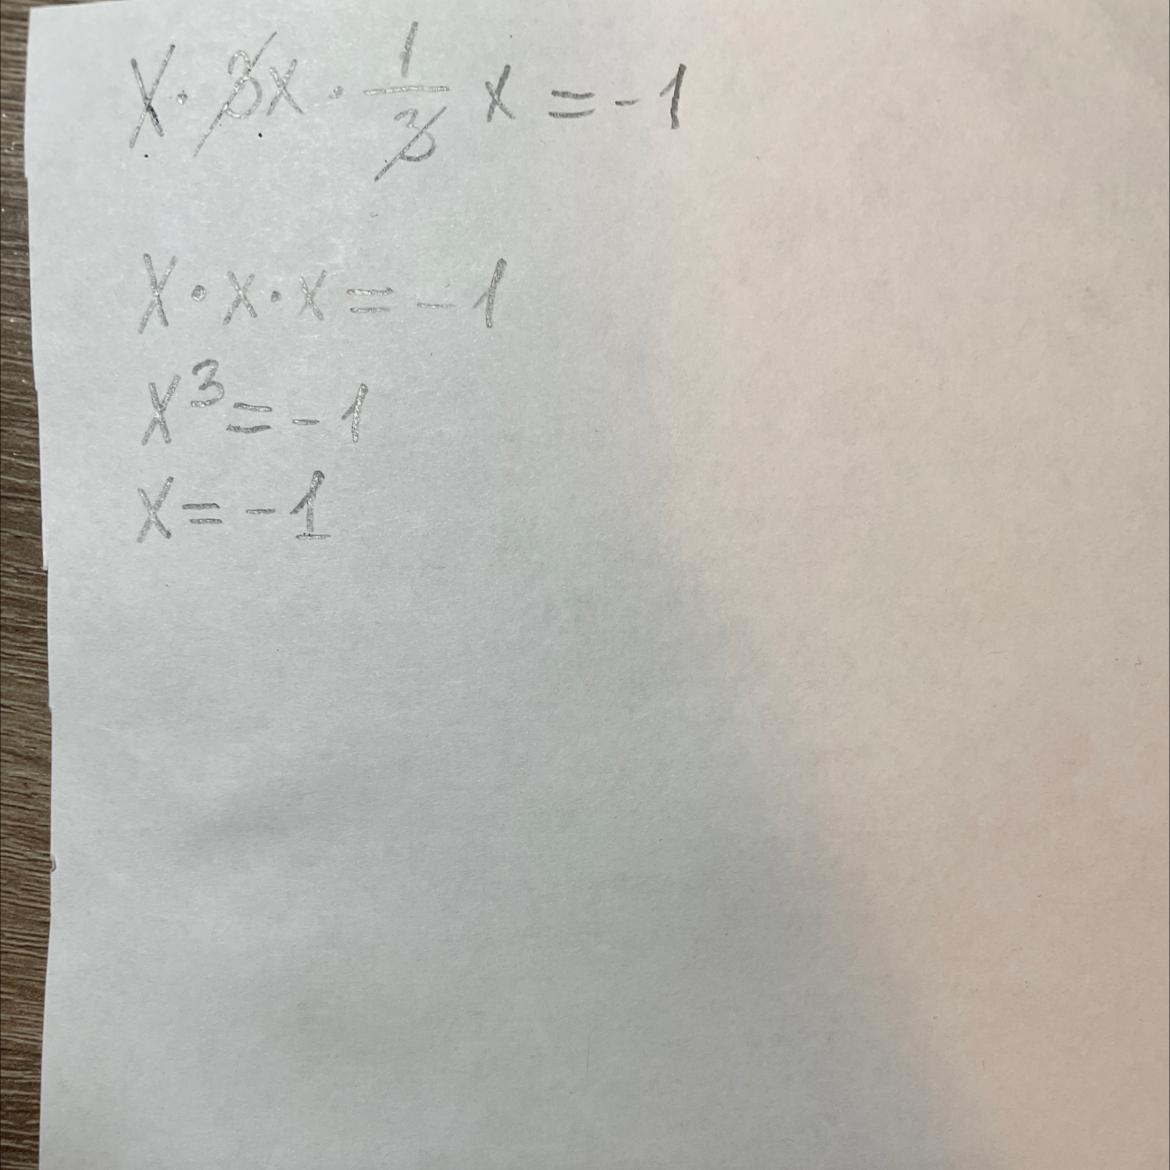 x · 3x · 1/3 x = -1
x · x · x = -1
x³ = -1
x = -1